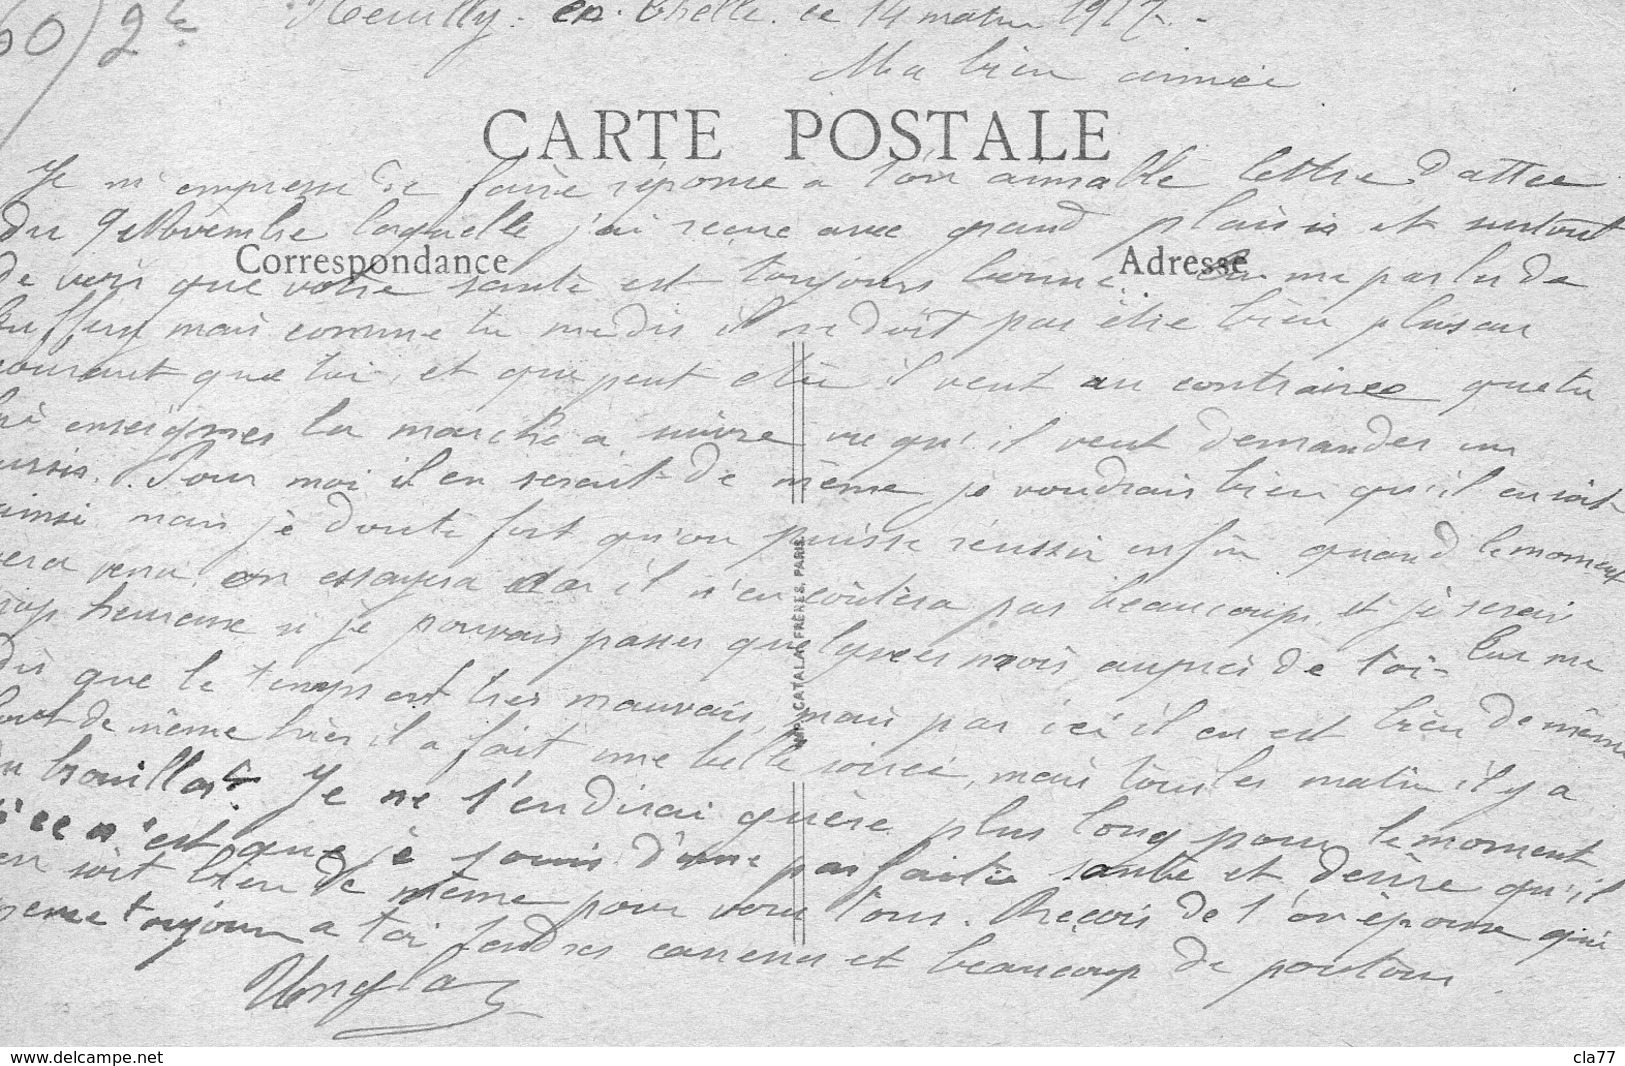 60/2e Neuilly. en. Thelle. ce 14 matin 1917.
Ma bien aimée
CARTE POSTALE
Je m'empresse de faire réponse a ton aimable lettre Dattee
du 9 Novembre laquelle j'ai reçue avec grand plaisir et surtout
Correspondance Adresse
De voir que votre santé est toujours bonne. Tu me parlu de
mais comme tu me dis il ne doit pas être bien plus au
courant que toi et que peut etre il veut au contraire que tu
lui enseignes la marche a suivre vu qu'il veut demander un
sursis. Pour moi il en serait De même, je voudrais bien qu'il en soit
ainsi mais je doute fort qu'on puisse réussir enfin quand le moment
sera venu on essayera car il n'en coûtera pas beaucoup, et je serai
trop heureuse si je pouvais passer quelques mois auprès De toi. Tu me
dis que le temps est tres mauvais, mais par ici il en est bien De même
tout de même hier il a fait une belle soirée, mais tous les matin il y a
du brouillard. Je ne t'en dirai guère plus long pour le moment
si ce n'est que je suis d'une parfaite santé et désire qu'il
en soit bien De même pour vous tous. Reçois De ton épouse qui
pense toujours a toi tendres caresses et beaucoup De
IMP. CATALA FRÈRES. PARIS
www.delcampe.net
cla77